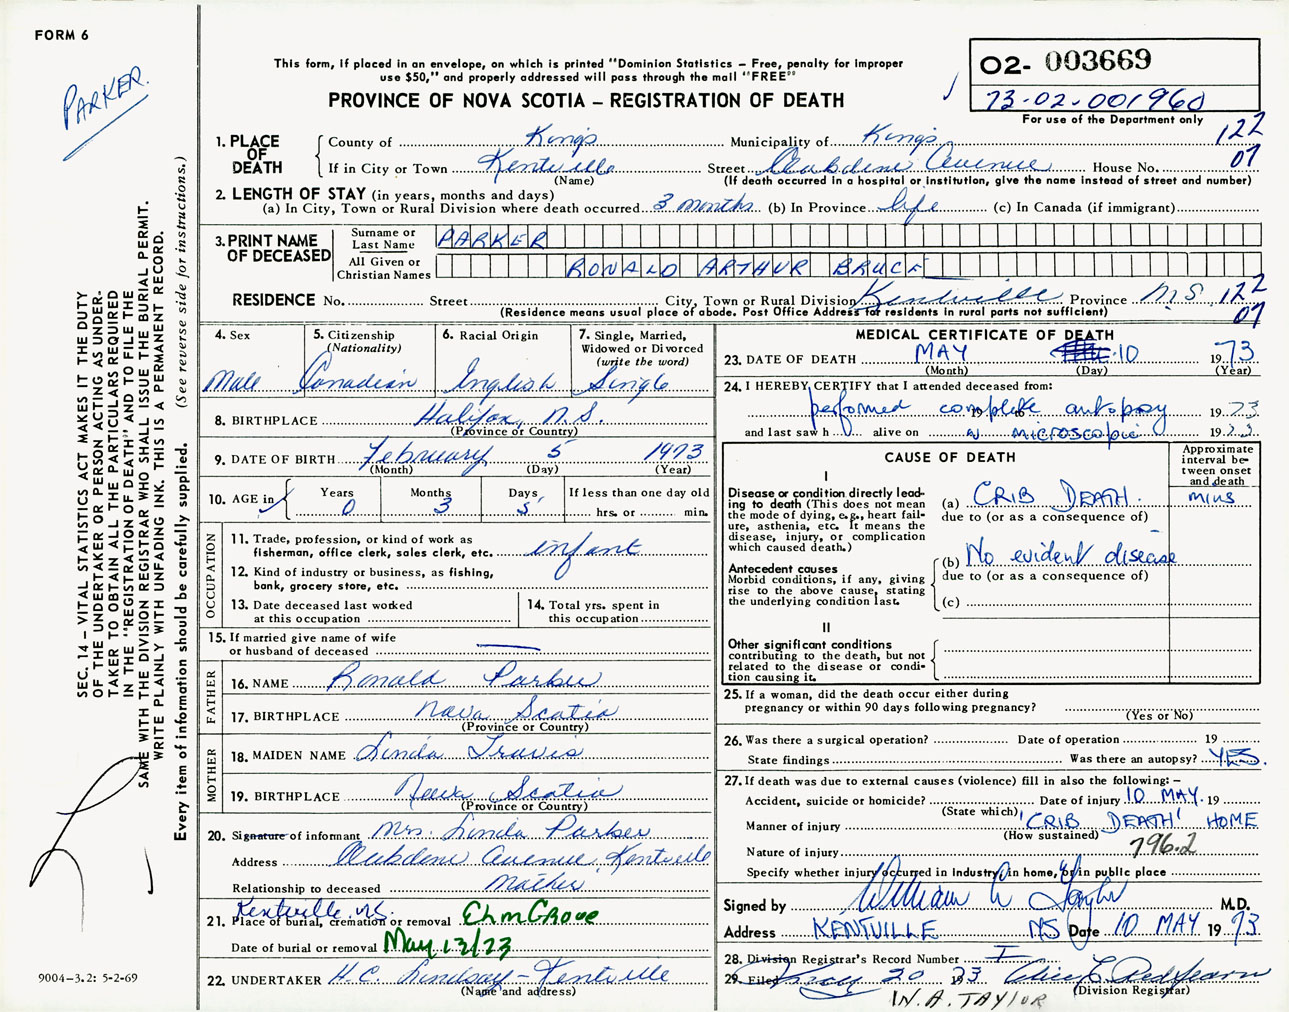 FORM 6
PARKER.
SEC. 14 – VITAL STATISTICS ACT MAKES IT THE DUTY
OF THE UNDERTAKER OR PERSON ACTING AS UNDER-
TAKER TO OBTAIN ALL THE PARTICULARS REQUIRED
IN THE "REGISTRATION OF DEATH" AND TO FILE THE
SAME WITH THE DIVISION REGISTRAR WHO SHALL ISSUE THE BURIAL PERMIT.
WRITE PLAINLY WITH UNFADING INK. THIS IS A PERMANENT RECORD.
Every item of information should be carefully supplied. (See reverse side for instructions.)
9004-3.2: 5-2-69
This form, if placed in an envelope, on which is printed "Dominion Statistics – Free, penalty for improper
use $50," and properly addressed will pass through the mail "FREE"
PROVINCE OF NOVA SCOTIA – REGISTRATION OF DEATH
02- 003669
73-02-001960
For use of the Department only
1. PLACE OF DEATH County of Kings Municipality of Kings 122
If in City or Town Kentville Street Avenue House No. 07
(Name) (If death occurred in a hospital or institution, give the name instead of street and number)
2. LENGTH OF STAY (in years, months and days)
(a) In City, Town or Rural Division where death occurred 3 months (b) In Province life (c) In Canada (if immigrant)
3. PRINT NAME OF DECEASED Surname or Last Name PARKER
All Given or Christian Names RONALD ARTHUR BRUCE
RESIDENCE No. Street City, Town or Rural Division Kentville Province N.S. 122
(Residence means usual place of abode. Post Office Address for residents in rural parts not sufficient) 07
4. Sex 5. Citizenship (Nationality) 6. Racial Origin 7. Single, Married, Widowed or Divorced (write the word)
Male Canadian English Single
8. BIRTHPLACE Halifax, N.S.
(Province or Country)
9. DATE OF BIRTH February 5 1973
(Month) (Day) (Year)
10. AGE in Years Months Days If less than one day old
0 3 5 hrs. or min.
OCCUPATION
11. Trade, profession, or kind of work as
fisherman, office clerk, sales clerk, etc. infant
12. Kind of industry or business, as fishing,
bank, grocery store, etc.
13. Date deceased last worked at this occupation 14. Total yrs. spent in this occupation
15. If married give name of wife
or husband of deceased
FATHER
16. NAME Ronald Parker
17. BIRTHPLACE Nova Scotia
(Province or Country)
MOTHER
18. MAIDEN NAME Linda Travis
19. BIRTHPLACE Nova Scotia
(Province or Country)
20. Signature of informant Mrs. Linda Parker
Address Avenue, Kentville
Relationship to deceased Mother
Kentville, NS.
21. Place of burial, cremation or removal Elm Grove
Date of burial or removal May 12/73
22. UNDERTAKER H.C. Lindsay – Kentville
(Name and address)
MEDICAL CERTIFICATE OF DEATH
23. DATE OF DEATH MAY 10 1973
(Month) (Day) (Year)
24. I HEREBY CERTIFY that I attended deceased from:
performed complete autopsy 1973
and last saw h alive on MICROSCOPIC 1973
CAUSE OF DEATH
Approximate interval between onset and death
I
Disease or condition directly lead-
ing to death (This does not mean
the mode of dying, e.g., heart fail-
ure, asthenia, etc. It means the
disease, injury, or complication
which caused death.)
(a) CRIB DEATH. mins
due to (or as a consequence of)
Antecedent causes
Morbid conditions, if any, giving
rise to the above cause, stating
the underlying condition last.
(b) No evident disease
due to (or as a consequence of)
(c)
II
Other significant conditions
contributing to the death, but not
related to the disease or condi-
tion causing it.
25. If a woman, did the death occur either during
pregnancy or within 90 days following pregnancy?
(Yes or No)
26. Was there a surgical operation? Date of operation 19
State findings Was there an autopsy? YES.
27. If death was due to external causes (violence) fill in also the following: –
Accident, suicide or homicide? Date of injury 10 MAY. 19
(State which)
Manner of injury 'CRIB DEATH' HOME
(How sustained)
Nature of injury 796.2
Specify whether injury occurred in Industry, in home, or in public place
Signed by William A Taylor M.D.
Address KENTVILLE NS Date 10 MAY 1973
28. Division Registrar's Record Number
29. Filed May 20 1973
(Division Registrar)
W. A. TAYLOR